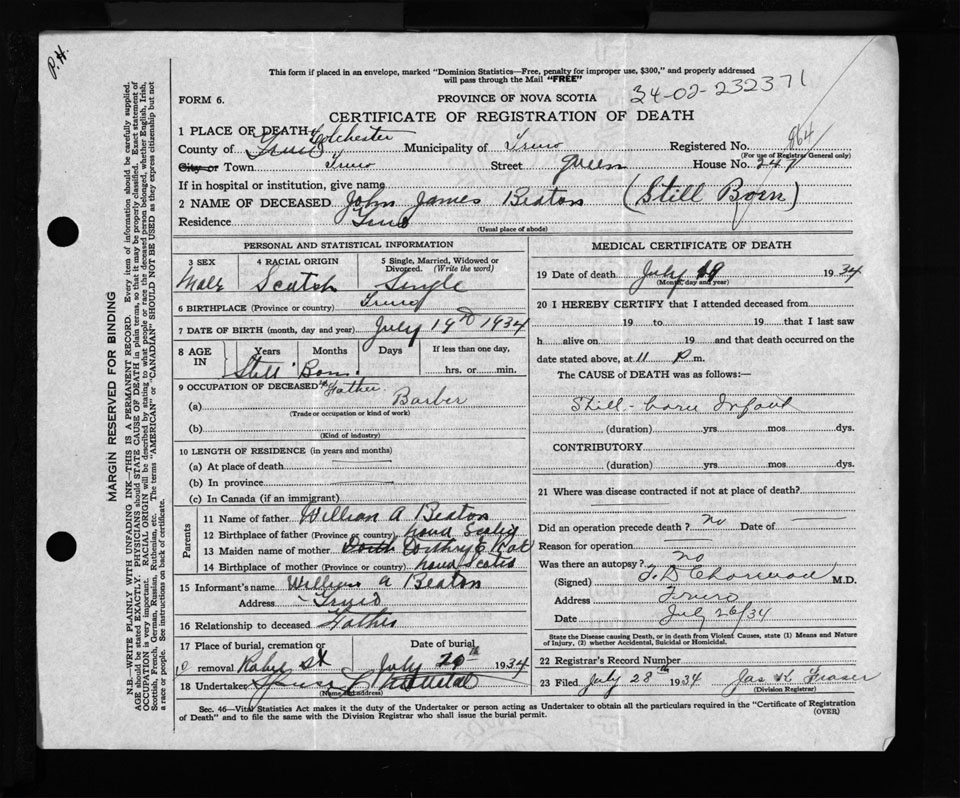 P.H.
This form if placed in an envelope, marked "Dominion Statistics—Free, penalty for improper use, $300," and properly addressed
will pass through the Mail "FREE"
34-02-232371
FORM 6.
PROVINCE OF NOVA SCOTIA
CERTIFICATE OF REGISTRATION OF DEATH
864
1 PLACE OF DEATH
County of Truro Colchester Municipality of Truro Registered No.
(For use of Registrar General only)
City or Town Truro Street Queen House No. 247
If in hospital or institution, give name
2 NAME OF DECEASED John James Beaton (Still Born)
Residence Truro
(Usual place of abode)
PERSONAL AND STATISTICAL INFORMATION
3 SEX 4 RACIAL ORIGIN 5 Single, Married, Widowed or Divorced. (Write the word)
Male Scotch Single
6 BIRTHPLACE (Province or country) Truro
7 DATE OF BIRTH (month, day and year) July 19th 1934
8 AGE IN Years Months Days If less than one day, hrs. or min.
Still Born.
9 OCCUPATION OF DECEASED Father
(a) Barber
(Trade or occupation or kind of work)
(b)
(Kind of industry)
10 LENGTH OF RESIDENCE (in years and months)
(a) At place of death
(b) In province
(c) In Canada (if an immigrant)
Parents
11 Name of father William A Beaton
12 Birthplace of father (Province or country) Nova Scotia
13 Maiden name of mother Dorthy E
14 Birthplace of mother (Province or country) Nova Scotia
15 Informant's name William A Beaton
Address Truro
16 Relationship to deceased Father
17 Place of burial, cremation or removal Robie St Date of burial July 20th 1934
18 Undertaker
Name and address
MEDICAL CERTIFICATE OF DEATH
19 Date of death July 19 1934
(Month, day and year)
20 I HEREBY CERTIFY that I attended deceased from
19 to 19 that I last saw
h alive on 19 and that death occurred on the
date stated above, at 11 P. m.
The CAUSE of DEATH was as follows:—
Still-born Infant
(duration) yrs mos dys.
CONTRIBUTORY
(duration) yrs mos dys.
21 Where was disease contracted if not at place of death?
Did an operation precede death? no Date of
Reason for operation
Was there an autopsy? no
(Signed) M.D.
Address Truro
Date July 26/34
State the Disease causing Death, or in death from Violent Causes, state (1) Means and Nature
of Injury, (2) whether Accidental, Suicidal or Homicidal.
22 Registrar's Record Number
23 Filed July 28th 1934 Jas K Fraser
(Division Registrar)
Sec. 46—Vital Statistics Act makes it the duty of the Undertaker or person acting as Undertaker to obtain all the particulars required in the "Certificate of Registration
of Death" and to file the same with the Division Registrar who shall issue the burial permit.
(OVER)
MARGIN RESERVED FOR BINDING
N.B.—WRITE PLAINLY WITH UNFADING INK—THIS IS A PERMANENT RECORD. Every item of information should be carefully supplied.
AGE should be stated EXACTLY. PHYSICIANS should STATE CAUSE OF DEATH in plain terms, so that it may be properly classified. Exact statement of
OCCUPATION is very important. RACIAL ORIGIN will be described by stating to what people or race the deceased person belonged, whether English, Irish,
Scottish, French, German, Russian, Ruthenian, etc. The terms "AMERICAN" or "CANADIAN" SHOULD NOT BE USED as they express citizenship but not
a race or people. See instructions on back of certificate.